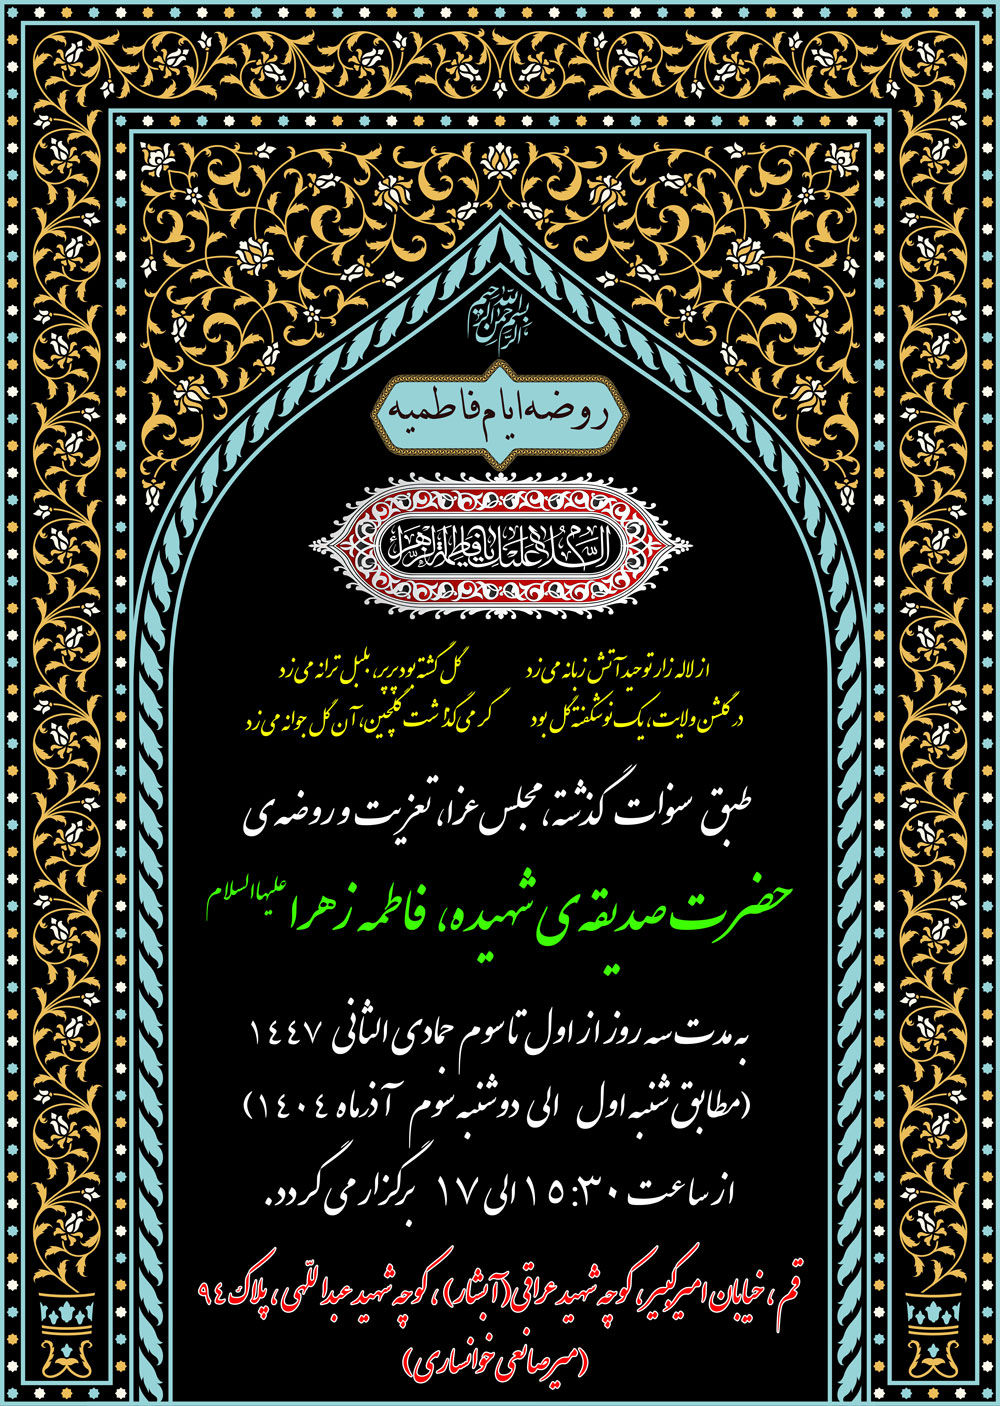 بسم الله الرحمن الرحیم
روضه ایام فاطمیه
السلام علیک یا فاطمة الزهرا
از لاله زار توحید آتش زبانه می زد گل گشته بود پرپر، بلبل ترانه می زد
در گلشن ولایت، یک نوشکفته گل بود گر می گذاشت گلچین، آن گل جوانه می زد
طبق سنوات گذشته، مجلس عزا، تعزیت و روضه ی
حضرت صدیقه ی شهیده، فاطمه زهرا علیها السلام
به مدت سه روز از اول تا سوم جمادی الثانی ۱۴۴۷
(مطابق شنبه اول الی دوشنبه سوم آذرماه ۱۴۰۴)
از ساعت ۱۵:۳۰ الی ۱۷ برگزار می گردد.
قم، خیابان امیرکبیر، کوچه شهید عراقی(آبشار)، کوچه شهید عبداللهی، پلاک ۹۴
(میرصانعی خوانساری)